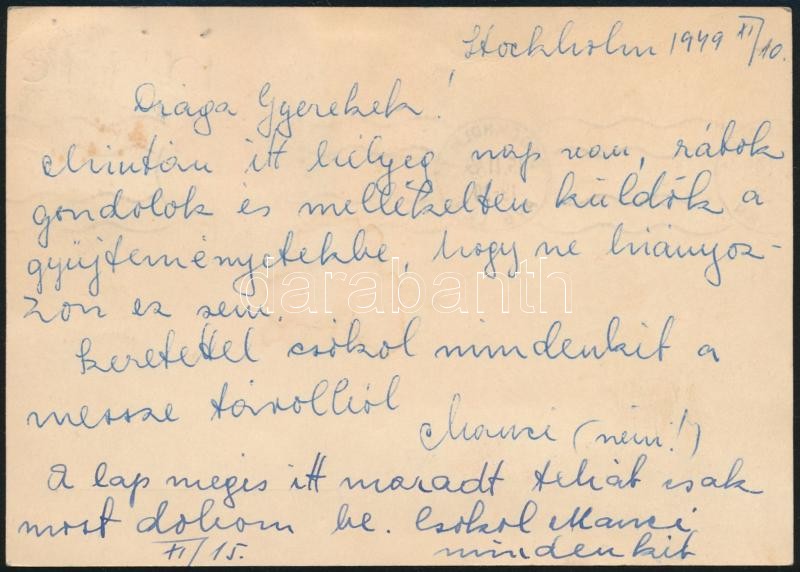 Stockholm 1949 XI/10.
Drága Gyerekek!
Miután itt bélyeg nap van, rátok
gondolok és mellékelten küldök a
gyüjteményetekbe, hogy ne hiányoz-
zon ez sem.
darabanth
Szeretettel csókol mindenkit a
messze távolból
Manci (néni!)
A lap mégis itt maradt tehát csak
most dobom be. Csókol Manci
XI/15. mindenkit